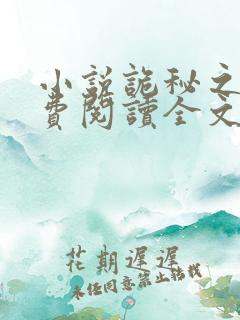 小説詭秘之
費閱讀全文
花期遲遲
未经同意禁止转载